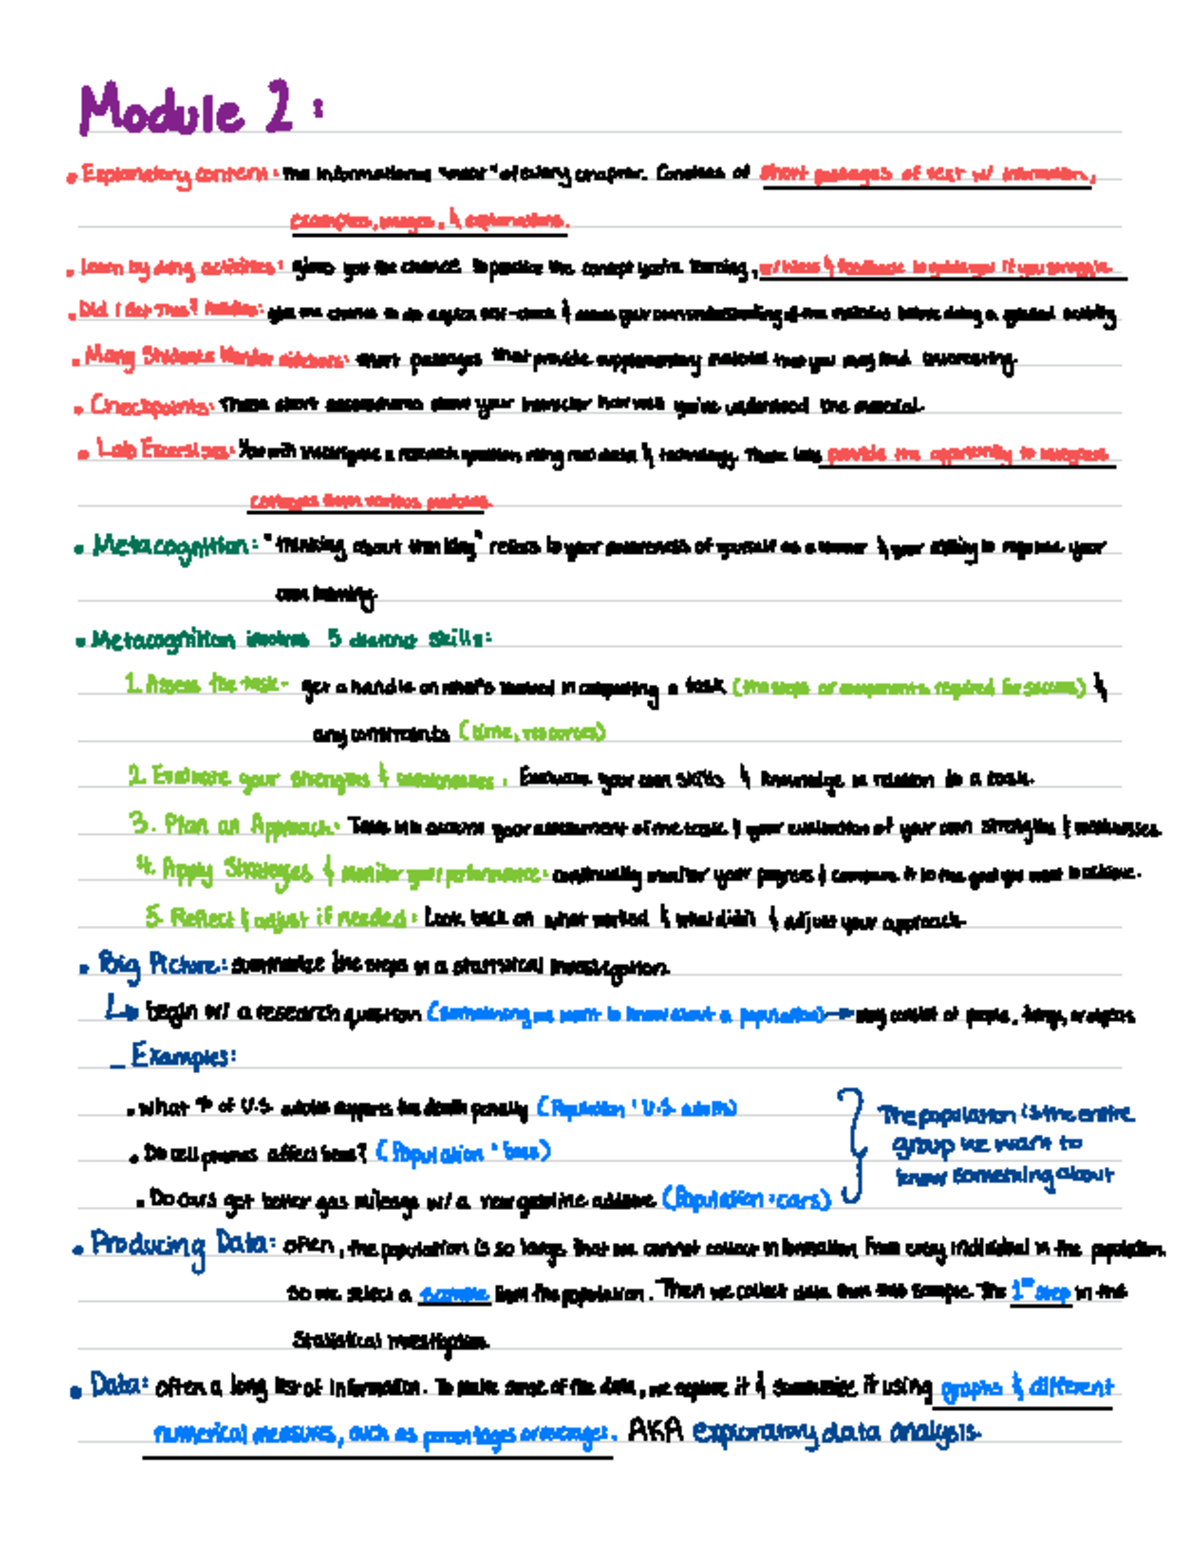 Module 2:
• Explanatory content: The informational "meat" of every chapter. Consists of short passages of text w/ information,
examples, images, & explanations.
• Learn by doing activities: gives you the chance to practice the concept you're learning, w/ hints & feedback to guide you if you struggle.
• Did I Get This? Activities: give the chance to do a quick self-check & assess your own understanding of the material before doing a graded activity
• Many Students Wonder : short passages that provide supplementary material that you may find interesting.
• Checkpoints: These short assessments show your instructor how well you've understood the material.
• Lab Excersises: You will investigate a research question using real data & technology. These labs provide the opportunity to integrate
concepts from various modules.
• Metacognition: "thinking about thinking" refers to your awareness of yourself as a learner & your ability to regulate your
own learning.
• Metacognition involves 5 distinct skills:
1. Assess the task- get a handle on what's involved in completing a task (the steps or components required for success) &
any constraints (time, resources)
2. Evaluate your strengths & weaknesses: Evaluate your own skills & knowledge in relation to a task.
3. Plan an Approach: Take into account your assessment of the task & your evaluation of your own strengths & weaknesses.
4. Apply Strategies & monitor your performance: continually monitor your progress & compare it to the goal you want to achieve.
5. Reflect & adjust if needed: Look back on what worked & what didn't & adjust your approach.
• Big Picture: summarize the steps in a statistical investigation.
↳ begin w/ a research question (something we want to know about a population) → may consist of people, things, or objects
– Examples:
• What % of U.S. adults supports the death penalty (Population: U.S. adults)
• Do cell phones affect bees? (Population: bees)
• Do cars get better gas mileage w/ a new gasoline additive (Population: cars)
The population is the entire
group we want to
know something about
• Producing Data: often, the population is so large that we cannot collect information from every individual in the population.
So we select a sample from the population. Then we collect data from this sample. The 1st step in the
statistical investigation.
• Data: often a long list of information. To make sense of the data, we explore it & summarize it using graphs & different
numerical measures, such as percentages or averages. AKA exploratory data analysis.